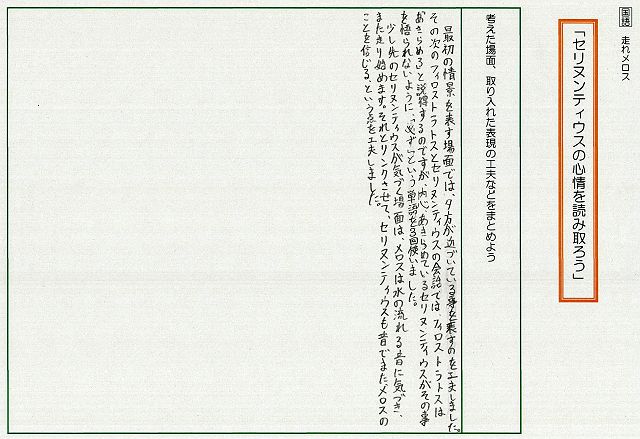 国語 走れメロス
「セリヌンティウスの心情を読み取ろう」
考えた場面、取り入れた表現の工夫などをまとめよう
最初の情景を表す場面では、夕方が近づいている事を表すのを工夫しました。
その次のフィロストラトスとセリヌンティウスの会話では、フィロストラトスは
あきらめろと説得するのですが、内心あきらめているセリヌンティウスがその事
を悟られないように、「必ず」という単語を3回使いました。
少し先のセリヌンティウスが気づく場面は、メロスは水の流れる音に気づき、
また走り始めます。それとリンクさせて、セリヌンティウスも音でまたメロスの
ことを信じる、という点を工夫しました。